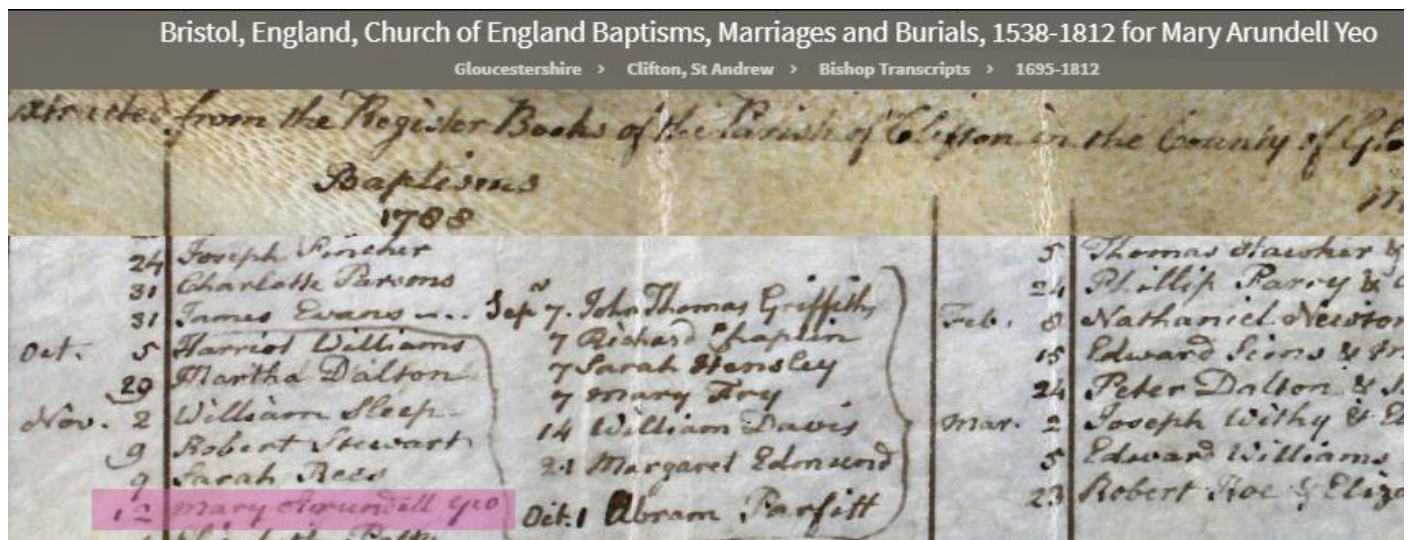 Bristol, England, Church of England Baptisms, Marriages and Burials, 1538-1812 for Mary Arundell Yeo
Gloucestershire › Clifton, St Andrew › Bishop Transcripts › 1695-1812
extracted from the Register Books of the Parish of Clifton in the County of Glo
Baptisms
1788
24 Joseph Pincher
31 Charlotte Parsons
31 James Evans
Oct. 5 Harriot Williams
20 Martha Dalton
Nov. 2 William Sleep
9 Robert Stewart
9 Sarah Rees
12 Mary Arundell Yeo
Sepr 7. John Thomas Griffith
7 Richard Chaplin
7 Sarah Hensley
7 Mary Fry
14 William Davis
21 Margaret Edmund
Oct. 1 Abram Parfitt
5 Thomas Hawker &
24 Phillip Parry &
Feb. 8 Nathaniel Newton
15 Edward Sims &
24 Peter Dalton &
Mar. 2 Joseph Withy & El
5 Edward Williams
23 Robert Roe & Eliza